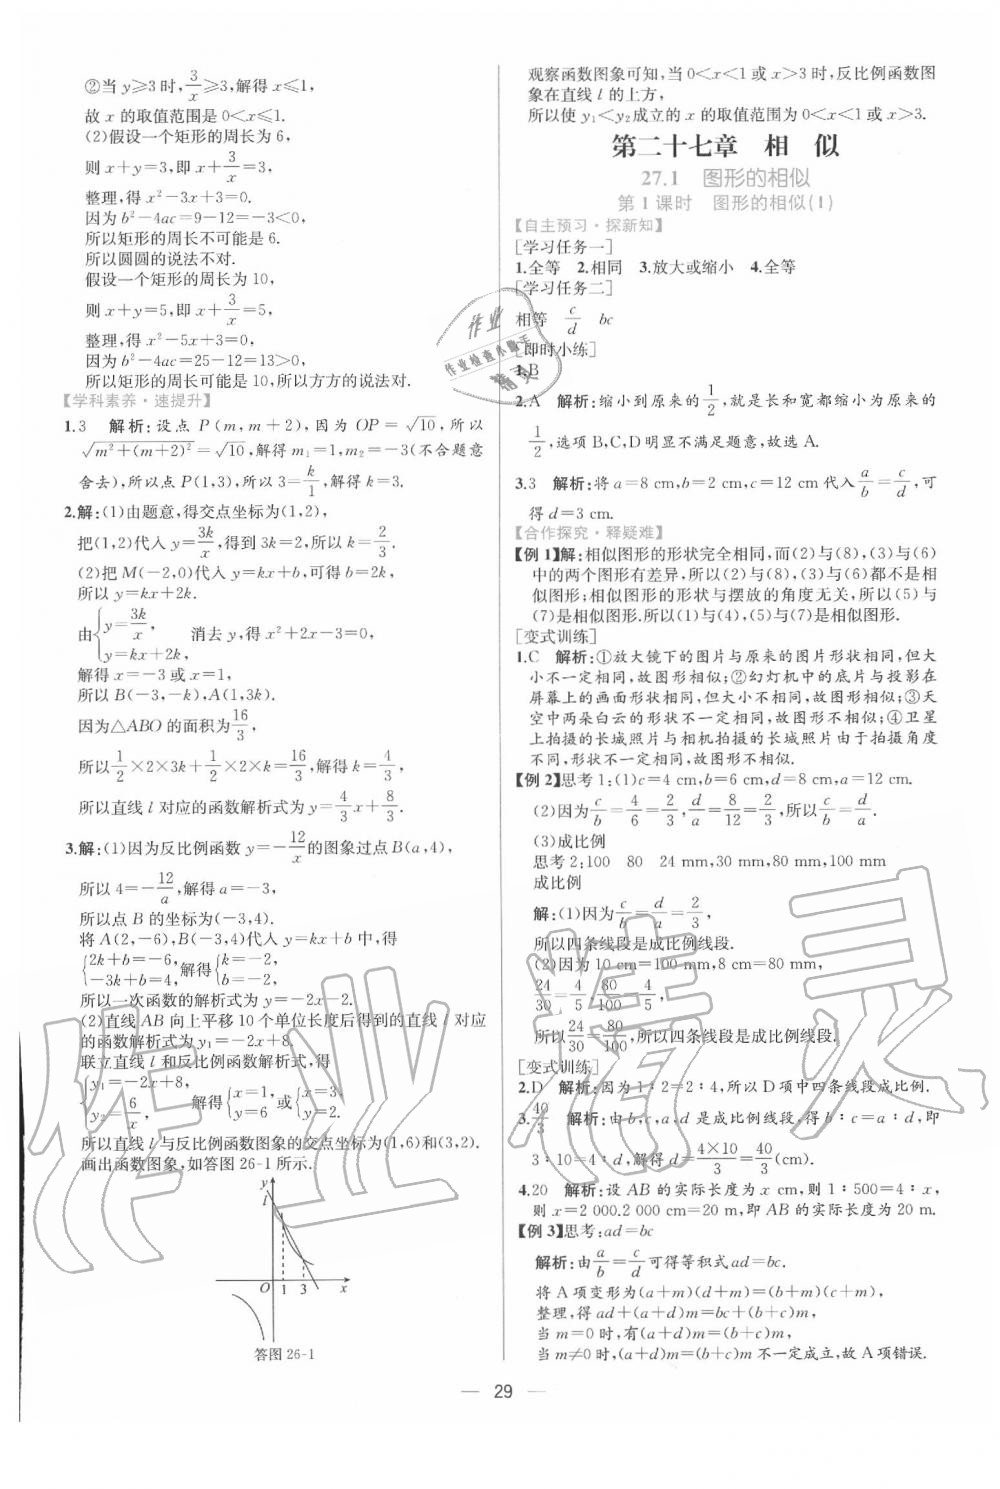 ②当 y⩾3 时,3/x⩾3,解得 x⩽1,
故 x 的取值范围是 0<x⩽1.
(2)假设一个矩形的周长为 6,
则 x+y=3,即 x+3/x=3,
整理,得 x²-3x+3=0.
因为 b²-4ac=9-12=-3<0,
所以矩形的周长不可能是 6.
所以圆圆的说法不对.
假设一个矩形的周长为 10,
则 x+y=5,即 x+3/x=5,
整理,得 x²-5x+3=0.
因为 b²-4ac=25-12=13>0,
所以矩形的周长可能是 10,所以方方的说法对.
【学科素养·速提升】
1.3 解析:设点 P(m,m+2),因为 OP=√10,所以
√(m²+(m+2)²)=√10,解得 m₁=1,m₂=-3(不合题意
舍去),所以点 P(1,3),所以 3=k/1,解得 k=3.
2.解:(1)由题意,得交点坐标为(1,2),
把(1,2)代入 y=3k/x,得到 3k=2,所以 k=2/3.
(2)把 M(-2,0)代入 y=kx+b,可得 b=2k,
所以 y=kx+2k.
由{y=3k/x, y=kx+2k, 消去 y,得 x²+2x-3=0,
解得 x=-3 或 x=1,
所以 B(-3,-k),A(1,3k).
因为△ABO 的面积为16/3,
所以1/2×2×3k+1/2×2×k=16/3,解得 k=4/3,
所以直线 l 对应的函数解析式为 y=4/3x+8/3.
3.解:(1)因为反比例函数 y=-12/x的图象过点 B(a,4),
所以 4=-12/a,解得 a=-3,
所以点 B 的坐标为(-3,4).
将 A(2,-6),B(-3,4)代入 y=kx+b 中,得
{2k+b=-6, -3k+b=4, 解得{k=-2, b=-2.
所以一次函数的解析式为 y=-2x-2.
(2)直线 AB 向上平移 10 个单位长度后得到的直线 l 对应
的函数解析式为 y₁=-2x+8,
联立直线 l 和反比例函数解析式,得
{y₁=-2x+8, y₂=6/x, 解得{x=1, y=6 或{x=3, y=2.
所以直线 l 与反比例函数图象的交点坐标为(1,6)和(3,2).
画出函数图象,如答图 26-1 所示.
y
l
O 1 3 x
答图 26-1
观察函数图象可知,当 0<x<1 或 x>3 时,反比例函数图
象在直线 l 的上方,
所以使 y₁<y₂成立的 x 的取值范围为 0<x<1 或 x>3.
第二十七章 相 似
27.1 图形的相似
第 1 课时 图形的相似(1)
【自主预习·探新知】
[学习任务一]
1.全等 2.相同 3.放大或缩小 4.全等
[学习任务二]
相等 c/d bc
[即时小练]
1.B
2.A 解析:缩小到原来的1/2,就是长和宽都缩小为原来的
1/2,选项 B,C,D 明显不满足题意,故选 A.
3.3 解析:将 a=8 cm,b=2 cm,c=12 cm 代入a/b=c/d,可
得 d=3 cm.
【合作探究·释疑难】
【例 1】解:相似图形的形状完全相同,而(2)与(8),(3)与(6)
中的两个图形有差异,所以(2)与(8),(3)与(6)都不是相
似图形;相似图形的形状与摆放的角度无关,所以(5)与
(7)是相似图形.所以(1)与(4),(5)与(7)是相似图形.
[变式训练]
1.C 解析:①放大镜下的图片与原来的图片形状相同,但大
小不一定相同,故图形相似;②幻灯机中的底片与投影在
屏幕上的画面形状相同,但大小不相同,故图形相似;③天
空中两朵白云的形状不一定相同,故图形不相似;④卫星
上拍摄的长城照片与相机拍摄的长城照片由于拍摄角度
不同,形状不一定相同,故图形不相似.
【例 2】思考 1:(1)c=4 cm,b=6 cm,d=8 cm,a=12 cm.
(2)因为c/b=4/6=2/3,d/a=8/12=2/3,所以c/b=d/a.
(3)成比例
思考 2:100 80 24 mm,30 mm,80 mm,100 mm
成比例
解:(1)因为c/b=d/a=2/3,
所以四条线段是成比例线段.
(2)因为 10 cm=100 mm,8 cm=80 mm,
24/30=4/5,80/100=4/5,
所以24/30=80/100,所以四条线段是成比例线段.
[变式训练]
2.D 解析:因为 1∶2=2∶4,所以 D 项中四条线段成比例.
3.40/3 解析:由 b,c,a,d 是成比例线段,得 b∶c=a∶d,即
3∶10=4∶d,解得 d=4×10/3=40/3(cm).
4.20 解析:设 AB 的实际长度为 x cm,则 1∶500=4∶x,
则 x=2 000.2 000 cm=20 m,即 AB 的实际长度为 20 m.
【例 3】思考:ad=bc
解析:由a/b=c/d可得等积式 ad=bc.
将 A 项变形为(a+m)(d+m)=(b+m)(c+m),
整理,得 ad+(a+d)m=bc+(b+c)m,
当 m=0 时,有(a+d)m=(b+c)m,
当 m≠0 时,(a+d)m=(b+c)m 不一定成立,故 A 项错误.
— 29 —
作业
作业检查小助手
精灵
作业精灵